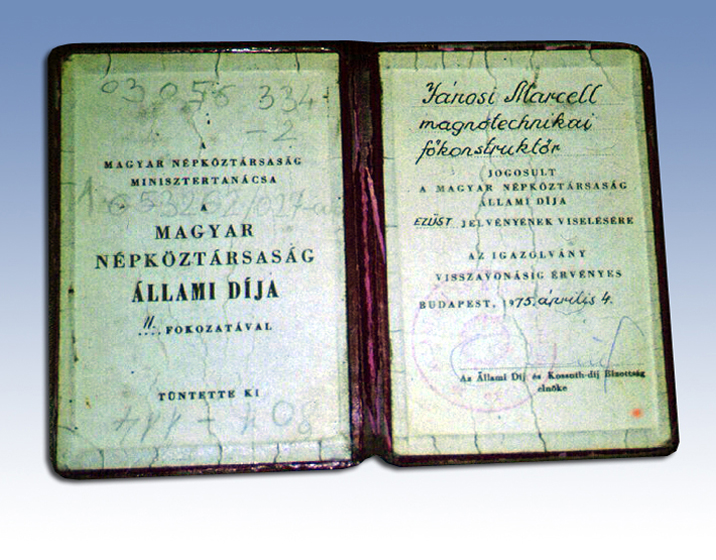 03056 334
-2
A
MAGYAR NÉPKÖZTÁRSASÁG
MINISZTERTANÁCSA
A
MAGYAR
NÉPKÖZTÁRSASÁG
ÁLLAMI DÍJA
II. FOKOZATÁVAL
TÜNTETTE KI
804-114
Jánosi Marcell
magnótechnikai
főkonstruktőr
JOGOSULT
A MAGYAR NÉPKÖZTÁRSASÁG
ÁLLAMI DÍJA
EZÜST JELVÉNYÉNEK VISELÉSÉRE
AZ IGAZOLVÁNY
VISSZAVONÁSIG ÉRVÉNYES
BUDAPEST, 1975. április 4.
Az Állami Díj és Kossuth-díj Bizottság
elnöke